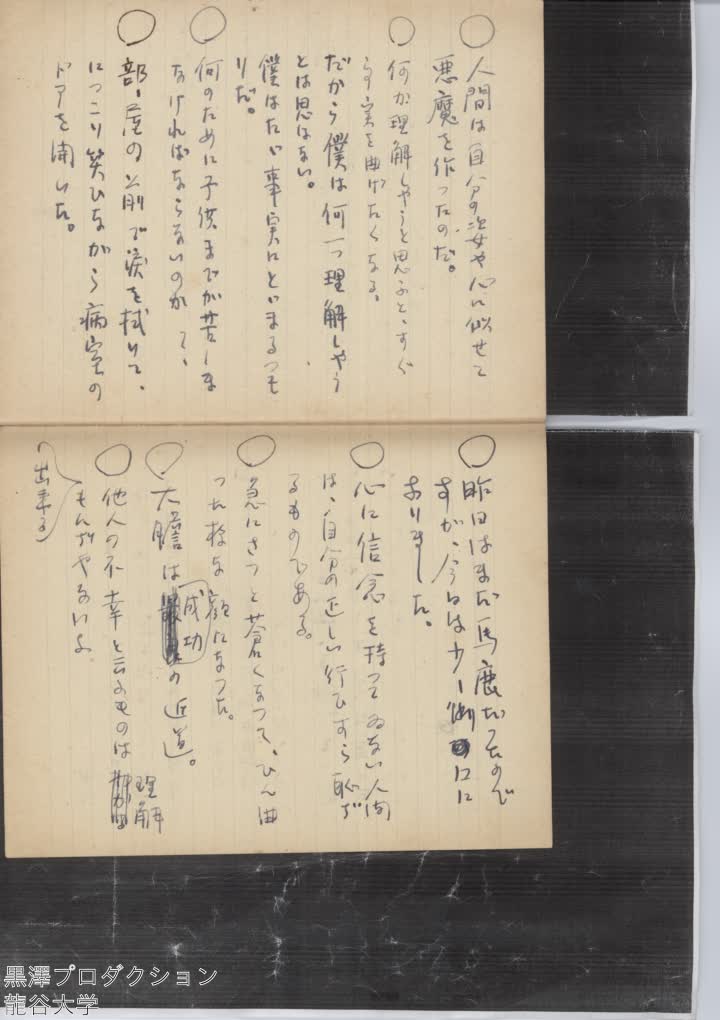 ○人間は自分の姿や心に似せて
悪魔を作ったのだ。
○何か理解しやうと思ふと、すぐ
事実を曲げたくなる。
だから僕は何一つ理解しやう
とは思はない。
僕はたゞ事実にとゞまるつも
りだ。
○何のために子供までが苦しま
なければならないのかって、
○部屋の前で涙を拭いて、
につこり笑ひながら病室の
ドアを開いた。
○昨日はまだ馬鹿だったので
すが、今日は少し利口に
なりました。
○心に信念を持ってゐない人間
は、自分の正しい行ひすら恥ぢ
るものである。
○急にさっと蒼くなって、ひん曲
った様な顔になった。
○大膽は成功の近道。
○他人の不幸と云ふものは理解
出来る
もんぢやないよ
黒澤プロダクション
龍谷大学